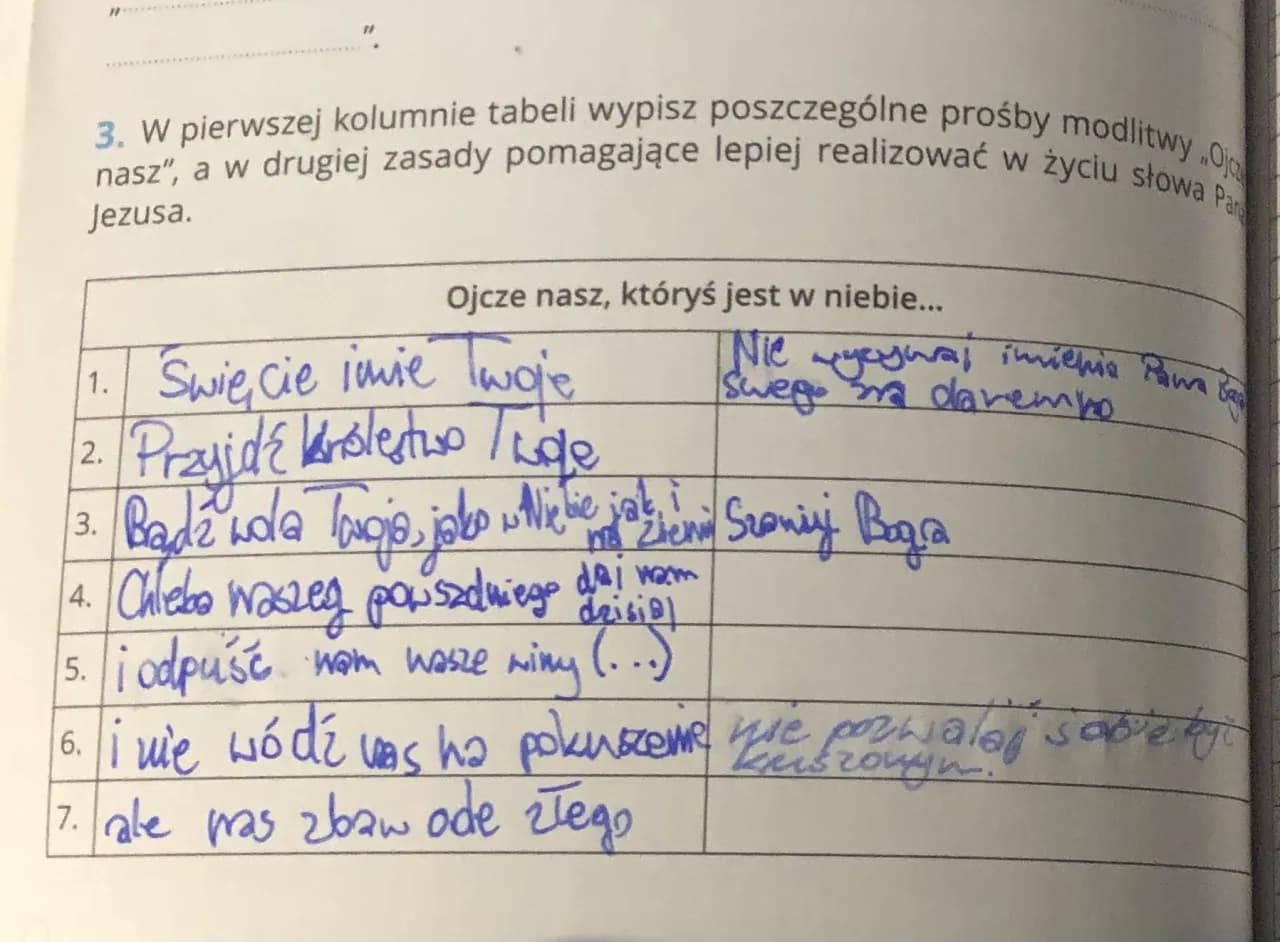 "
".
3. W pierwszej kolumnie tabeli wypisz poszczególne prośby modlitwy „Ojcze
nasz", a w drugiej zasady pomagające lepiej realizować w życiu słowa Pana
Jezusa.
Ojcze nasz, któryś jest w niebie...
1. Święcie imie Twoje Nie wyzywaj imienia Pana Boga
swego na daremno
2. Przyjdź królestwo Twoje
3. Bądź wola Twoja, jako w Niebie jak i Szanuj Boga
na Ziemi
4. Chleba naszeg powszdniego daj nam
dzisiaj
5. i odpuść nam nasze winy (...)
6. i nie wódź nas na pokuszenie nie pozwalaj sobie być
kuszonym.
7. ale nas zbaw ode złego